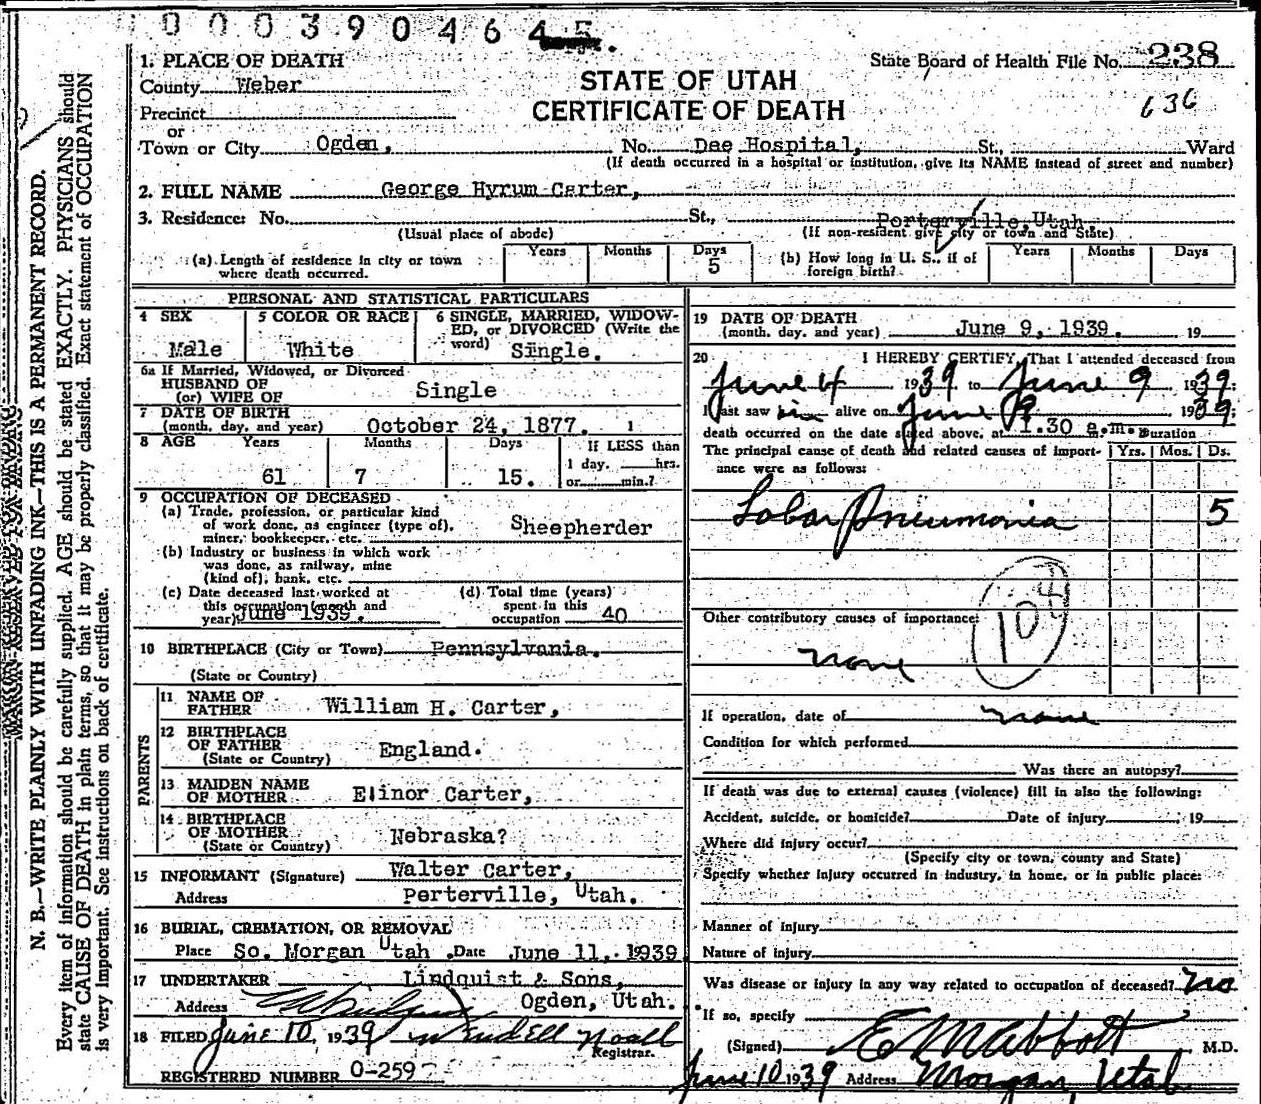 0003904645.
State Board of Health File No. 238
636
STATE OF UTAH
CERTIFICATE OF DEATH
1. PLACE OF DEATH
County Weber
Precinct
or
Town or City Ogden, No. Dee Hospital, St., Ward
(If death occurred in a hospital or institution, give its NAME instead of street and number)
2. FULL NAME George Hyrum Carter,
3. Residence: No. St., Porterville, Utah.
(Usual place of abode) (If non-resident give city or town and State)
(a) Length of residence in city or town where death occurred. Years Months Days 5
(b) How long in U. S., if of foreign birth? Years Months Days
PERSONAL AND STATISTICAL PARTICULARS
4 SEX Male
5 COLOR OR RACE White
6 SINGLE, MARRIED, WIDOWED, or DIVORCED (Write the word) Single.
6a If Married, Widowed, or Divorced
HUSBAND OF
(or) WIFE OF Single
7 DATE OF BIRTH
(month, day, and year) October 24, 1877. 1
8 AGE Years 61 Months 7 Days 15. If LESS than
1 day. hrs.
or min.?
9 OCCUPATION OF DECEASED
(a) Trade, profession, or particular kind
of work done, as engineer (type of),
miner, bookkeeper, etc. Sheepherder
(b) Industry or business in which work
was done, as railway, mine
(kind of), bank, etc.
(c) Date deceased last worked at
this occupation (month and
year) June 1939.
(d) Total time (years)
spent in this
occupation 40
10 BIRTHPLACE (City or Town) Pennsylvania.
(State or Country)
PARENTS
11 NAME OF
FATHER William H. Carter,
12 BIRTHPLACE
OF FATHER England.
(State or Country)
13 MAIDEN NAME
OF MOTHER Elinor Carter,
14 BIRTHPLACE
OF MOTHER Nebraska?
(State or Country)
15 INFORMANT (Signature) Walter Carter,
Address Perterville, Utah.
16 BURIAL, CREMATION, OR REMOVAL
Place So. Morgan Utah. Date June 11, 1939
17 UNDERTAKER Lindquist & Sons,
Address Ogden, Utah.
18 FILED June 10, 1939 Wendell Noall
Registrar.
REGISTERED NUMBER 0-259
19 DATE OF DEATH
(month, day, and year) June 9, 1939. 19
20 I HEREBY CERTIFY, That I attended deceased from
June 4 1939, to June 9 1939;
I last saw him alive on June 9 1939;
death occurred on the date stated above, at 1.30 a.m. m. Duration
The principal cause of death and related causes of importance were as follows: Yrs. Mos. Ds.
Lobar Pneumonia 5
Other contributory causes of importance:
none
If operation, date of none
Condition for which performed
Was there an autopsy?
If death was due to external causes (violence) fill in also the following:
Accident, suicide, or homicide? Date of injury , 19
Where did injury occur?
(Specify city or town, county and State)
Specify whether injury occurred in industry, in home, or in public place:
Manner of injury
Nature of injury
Was disease or injury in any way related to occupation of deceased? no
If so, specify
(Signed) E M Abbott M.D.
June 10, 1939 Address Morgan, Utah
N. B.—WRITE PLAINLY WITH UNFADING INK—THIS IS A PERMANENT RECORD.
MARGIN RESERVED FOR BINDING
Every item of information should be carefully supplied. AGE should be stated EXACTLY. PHYSICIANS should
state CAUSE OF DEATH in plain terms, so that it may be properly classified. Exact statement of OCCUPATION
is very important. See instructions on back of certificate.